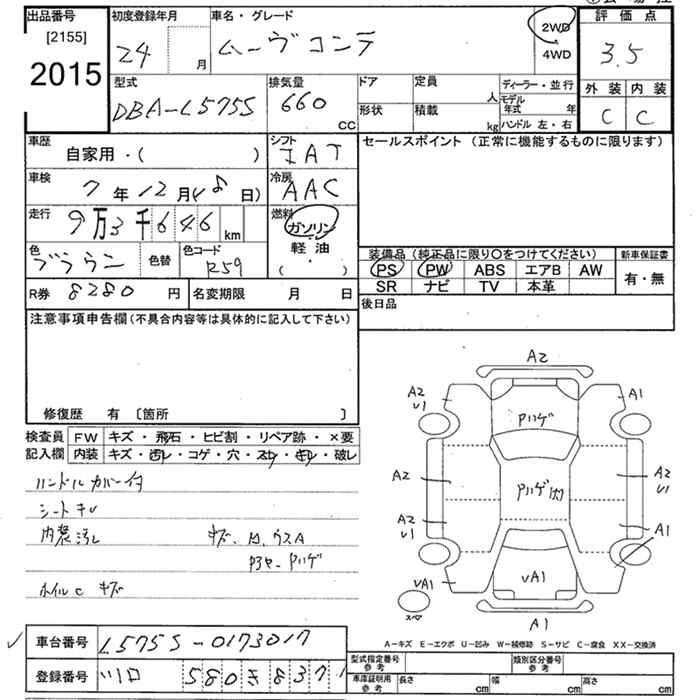 出品番号
[2155]
2015
初度登録年月
24 月
車名・グレード
ムーヴコンテ
2WD
4WD
評価点
3.5
外装 内装
C C
型式
DBA-L575S
排気量
660 CC
ドア 定員 人
形状 積載 kg
ディーラー・並行
モデル年式 年
ハンドル 左・右
車歴
自家用・( )
シフト
IAT
車検
7年12月(8日)
冷房
AAC
走行
9万3千646km
燃料
ガソリン
軽油
( ・ )
色
ブラウン
色替
色コード
R59
R券 8280 円
名変期限 月 日
セールスポイント (正常に機能するものに限ります)
装備品 (純正品に限り○をつけてください)
PS PW ABS エアB AW
SR ナビ TV 本革
新車保証書
有・無
後日品
注意事項申告欄(不具合内容等は具体的に記入して下さい)
修復歴 有 〔箇所 〕
検査員記入欄
FW キズ・飛石・ヒビ割・リペア跡・×要
内装 キズ・汚レ・コゲ・穴・スレ・キレ・破レ
ハンドルカバー付
シートキレ
内装汚レ
ホイルC キズ
A2
A2
U1
A1
アハゲ
A2
アハゲ
A2
U1
A2
U1
A1
UA1
UA1
スペア
A1
A-キズ E-エクボ U-凹み W-補修跡 S-サビ C-腐食 XX-交換済
車台番号 L575S-0173017
登録番号 580 き 8371
型式指定番号 参考
類別区分番号 参考
車庫証明用 参考
長さ cm
幅 cm
高さ cm